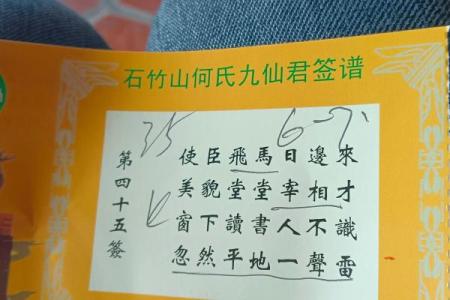 石竹山何氏九仙君签谱
35
6-7
第四十五簽
使臣飛馬日邊來
美貌堂堂宰相才
窗下讀書人不識
忽然平地一聲雷